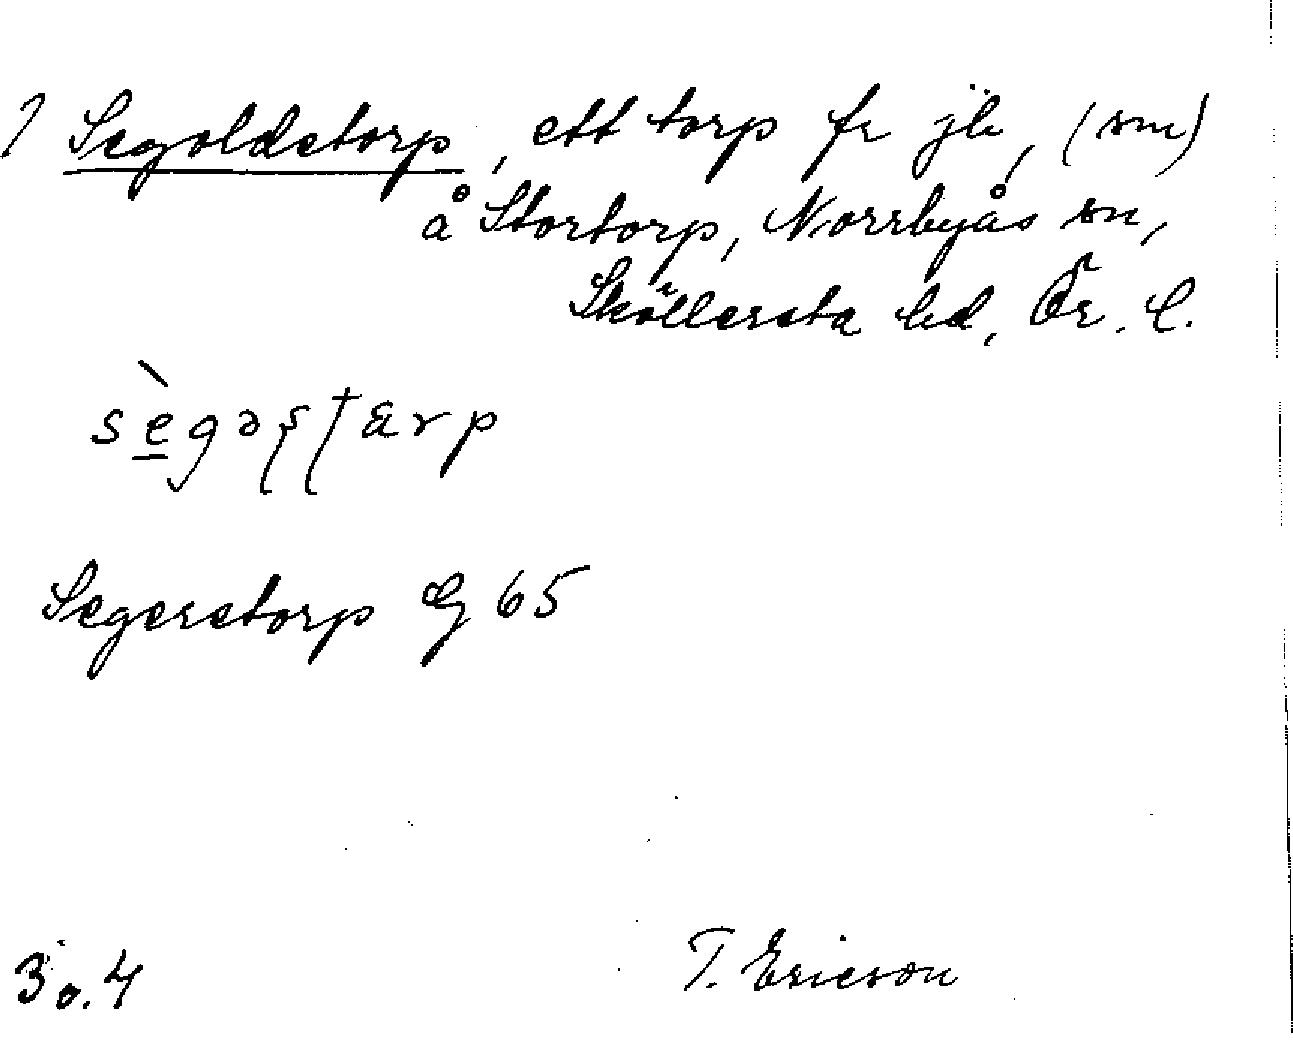 1 Segoldstorp, ett torp fr jb, (sm)
å Stortorp, Norrbyås sn,
Sköllersta hd, Ör. l.
sègəʂʈɑrp
Segerstorp G 65
3 o. 4
T. Ericson